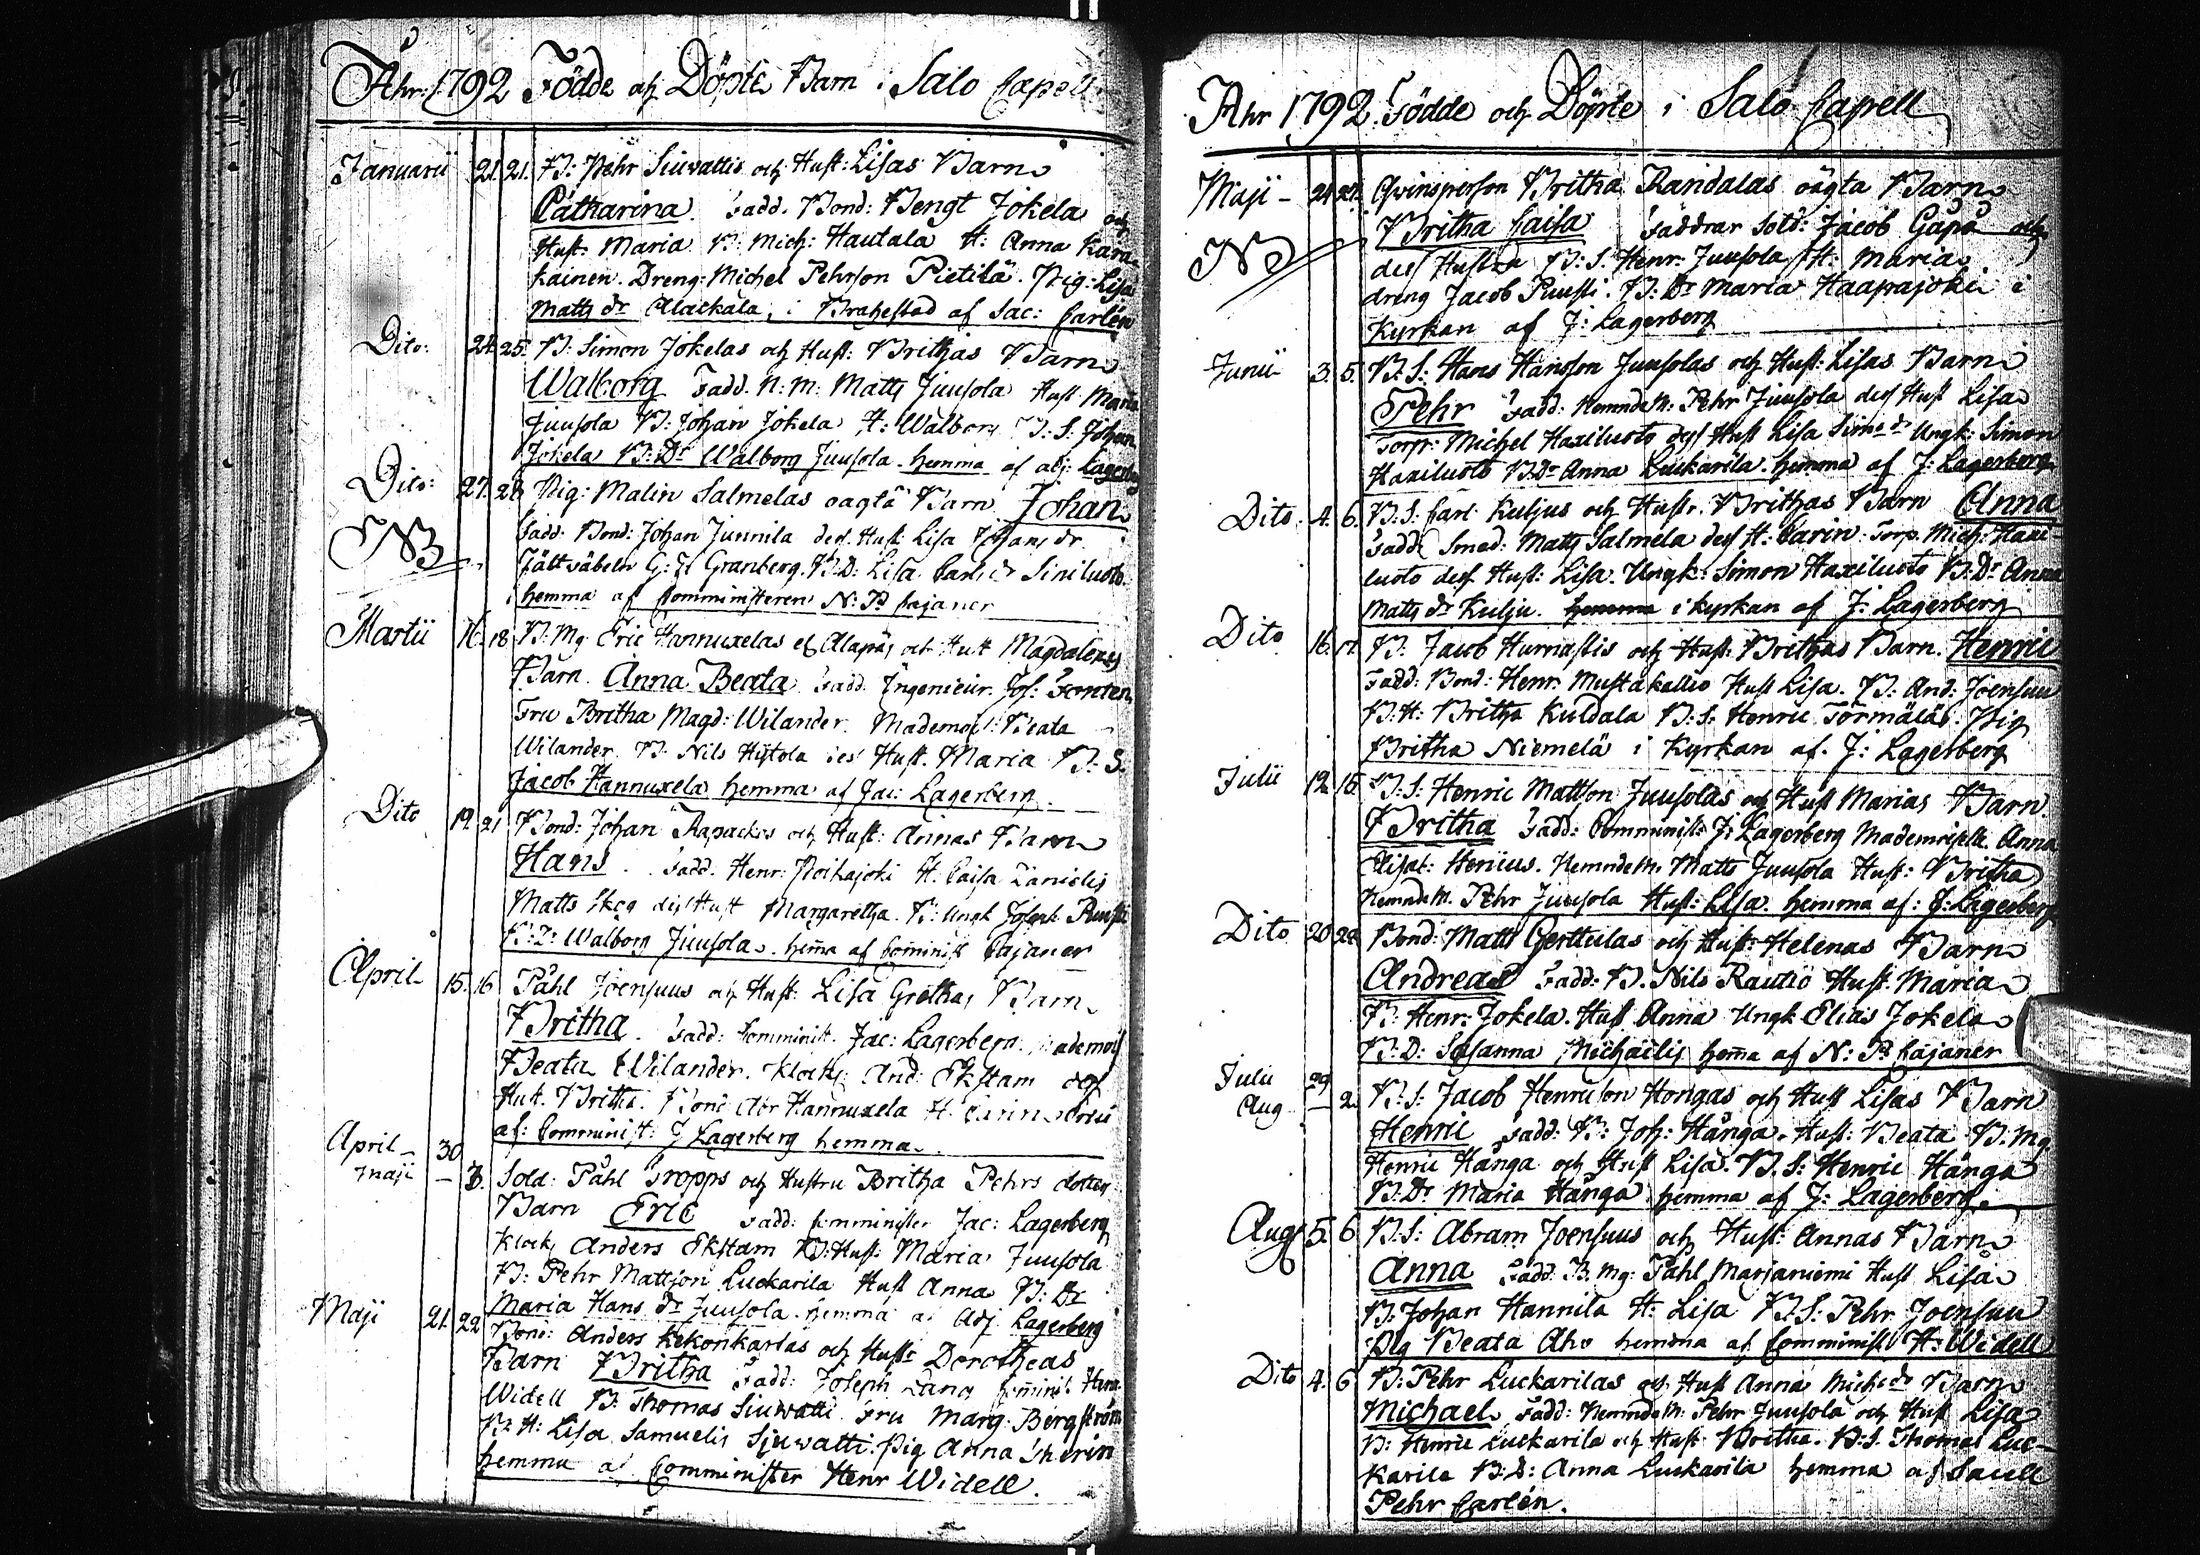 Åhr 1792 Födde och Döpte Barn i Salo Capell
Januarii 21. 21. B: Pehr Siuwattis och Hust: Lisas Barn
Catharina. Fadd. Bond: Bengt Jokela och
Hust: Maria B: Mich: Hautala H: Anna Kara
kainen. Dreng: Michel Pehrson Pietilä. Pig: Lisa
Matts dr Alackala, i Brahestad af Sac: Carlén
Dito: 24. 25. B: Simon Jokelas och Hust: Brithas Barn
Walborg Fadd. N. M: Matts Juusola Hust Maria
Juusola B: Johan Jokela H: Walborg B: S: Johan
Jokela B: Dr Walborg Juusola. hemma af adj: Lagerberg
Dito: 27. 28. Pig: Malin Salmelas oägta Barn Johan
NB
Fadd. Bond: Johan Junnila des Hust: Lisa Johans dr
Fältväbeln G: F: Granberg. B: D: Lisa Carls dr Siniluoto
hemma af Comministeren N: P: Cajaner
Martii 16. 18 B: Mg Eric Hannuxelas och Hust Magdalenas
Barn. Anna Beata Fadd. Ingenieur. Jos:
Fru Britha Magd: Wilander. Mademois: Beata
Wilander. B: Nils Hytola des Hust. Maria B: S.
Jacob Hannuxela hemma af Jac: Lagerberg.
Dito 19. 21 Bond: Johan Rapackos och Hust: Annas Barn
Hans. Fadd: Henr: Poikajoki H: Caisa Danielis
Matts Skog des Hust Margaretha. B: Ungk Joseph Ruusti
B: D: Walborg Juusola. hema af Cominist Cajaner
April 15. 16 Påhl Joensuus och Hust: Lisa Grethas Barn
Britha. Fadd: Comminist. Jac: Lagerberg. Mademois
Beata Wilander. Klock: And: Ekstam des
Hust. Britha. Bond Abr Hannuxela H:
af: Comminist: J Lagerberg hemma.
April 30
Maji 3. Sold: Påhl Tropps och Hustru Britha Pehrs dotters
Barn Eric Fadd: Comminister Jac: Lagerberg
Klock, Anders Ekstam B: Hust: Maria Juusola
B: Pehr Mattson Luckarila Hust Anna B: Dr
Maria Hans dr Juusola. hemma af Adj Lagerberg
Maji 21. 22 Bond: Anders Kekonkartas och Hustr Dorotheas
Barn Britha Fadd: Joseph Lang Cominist: Henr
Widell B: Thomas Siuwatti Fru Marg: Bergström
B: H: Lisa Samuelis Sjuwatti. Pig Anna Therin
hemma af Comminister Henr Widell.
Åhr 1792. Födde och Döpte i Salo Capell
Maji 24 27. Qvinsperson Britha Randalas oägta Barn
NB
Britha Caisa Faddrar Sold: Jacob Gåpå och
des Hustru B: S. Henr: Juusola H: Maria
dreng Jacob Ruusti. B: Dr Maria Haapajoki i
Kyrkan af J: Lagerberg
Junii 3. 5. B: S: Hans Hansson Juusolas och Hust: Lisas Barn
Pehr Fadd: Nemnde M: Pehr Juusola des Hust Lisa
Torpr: Michel Haxiluoto des Hust Lisa Sims dr Ungk: Simon
Haxiluoto B: Dr Anna Luckarila. hemma af J: Lagerberg
Dito. 4. 6. B: S: Carl Kuljus och Hustr. Brithas Barn Anna
Fadd: Smed: Matts Salmela des H: Carin. Torp. Mich: Haxi-
luoto des Hust: Lisa. Ungk: Simon Haxiluoto B: Dr Anna
Matts dr Kulju. hemma i Kyrkan af J: Lagerberg
Dito 16. 17. B: Jacob Hurnastis och Hust: Brithas Barn. Henric
Fadd: Bond: Henr: Mustakallio Hust Lisa. B: And: Joensuu
B: H: Britha Kuldala B: S: Henric Törmälä. Pig
Britha Niemelä i Kyrkan af. J: Lagerberg
Julii 12. 15. B: S: Henric Mattson Juusolas och Hust Marias Barn.
Britha Fadd: Comminist: J: Lagerberg Mademoiselle Anna
Elisab: Henius. Nemnde M. Matts Juusola Hust: Britha
Nemnde M. Pehr Juusola Hust: Lisa. hemma af: J: Lagerberg
Dito 20. 22. Bond: Matts Gerttulas och Hust: Helenas Barn
Andreas Fadd: B. Nils Rautio Hust: Maria
B: Henr: Jokela. Hust Anna Ungk Elias Jokela
B: D: Susanna Michailis hema af N: P: Cajaner
Julii 29
Aug — 2. B: S: Jacob Henricson Hongas och Hust Lisas Barn
Henric Fadd: B: Joh: Hånga. Hust: Beata B: Mg
Henric Hånga och Hust Lisa. B. S: Henric Hånga
B: Dr Maria Hånga hemma af J: Lagerberg.
Aug 5. 6 B: S: Abram Joensuus och Hust: Annas Barn
Anna Fadd: B. Mg: Påhl Marjaniemi Hust Lisa
B: Johan Hannila H: Lisa B: S: Pehr Joensuu
Pig Beata Aho hemma af Comminist: H: Widell
Dito 4. 6 B: Pehr Luckarilas och Hust Anna Mich: dr Barn
Michael Fadd: Nemnde M: Pehr Juusola och Hust Lisa
B: Henric Luckarila och Hust Britha. B: S. Thomas Luc-
karila B: D: Anna Luckarila hemma af Sacell
Pehr Carlén.